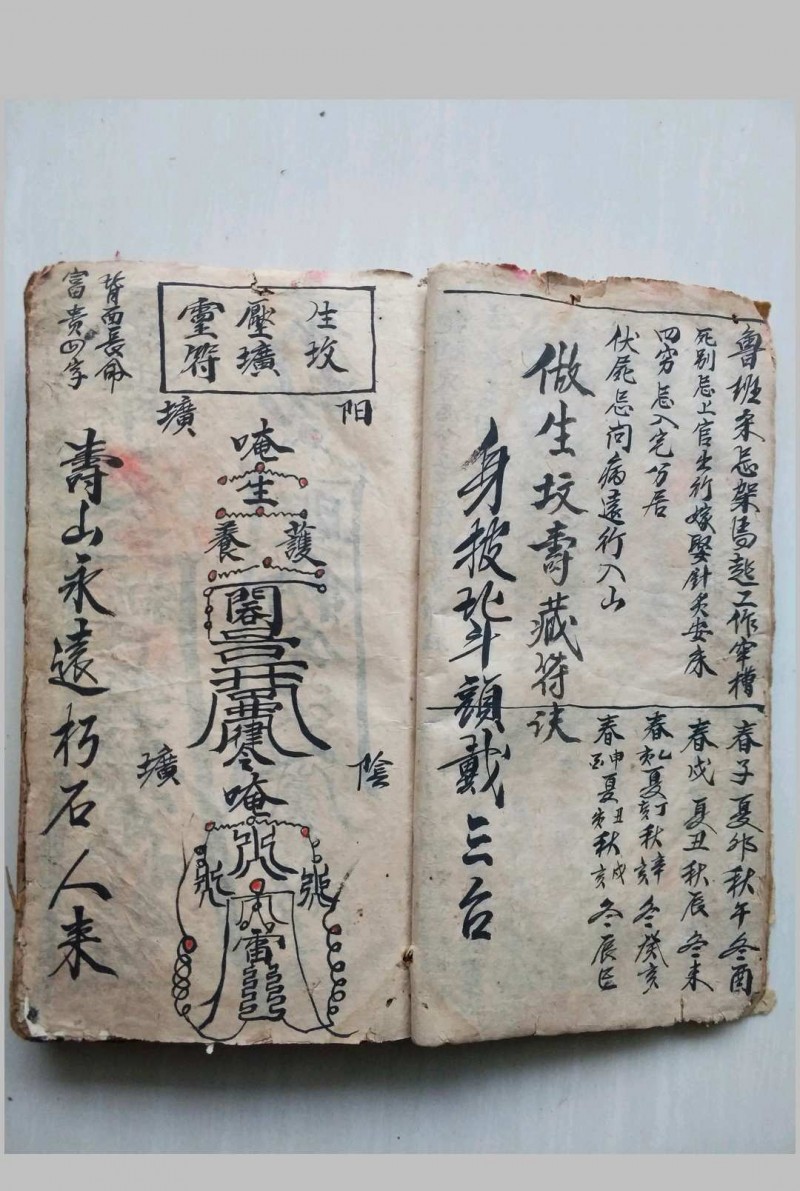 魯班杀忌架馬起工作牢槽
春子夏卯秋午冬酉
死別忌上官出行嫁娶針炙安床
春戌夏丑秋辰冬未
四穷忌入宅分居
春乙亥夏丁亥秋辛亥冬癸亥
伏屍忌问病遠行入山
做生坟壽藏符诀
身披北斗額戴三台
生坟
壓壙
靈符
阳
壙
唵
生
養護
陰
壙
唵
雷
背面長命
富貴四字
壽山永遠朽石人来